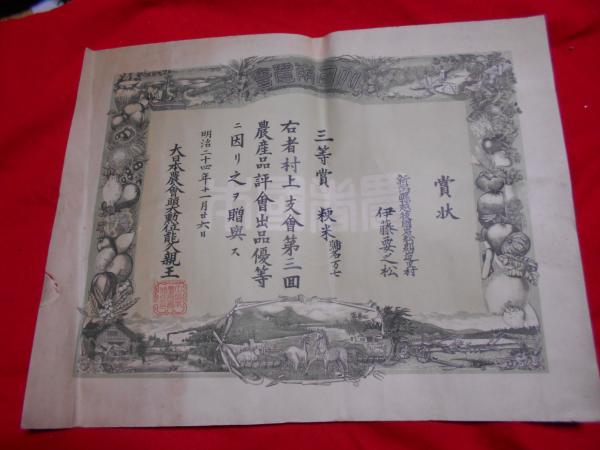 賞状
伊藤要之松
三等賞 粳米
右者村上支會第三回
農産品評會出品優等
ニ因リ之ヲ贈與ス
明治二十四年十一月廿六日
大日本農會頭大勲位能久親王